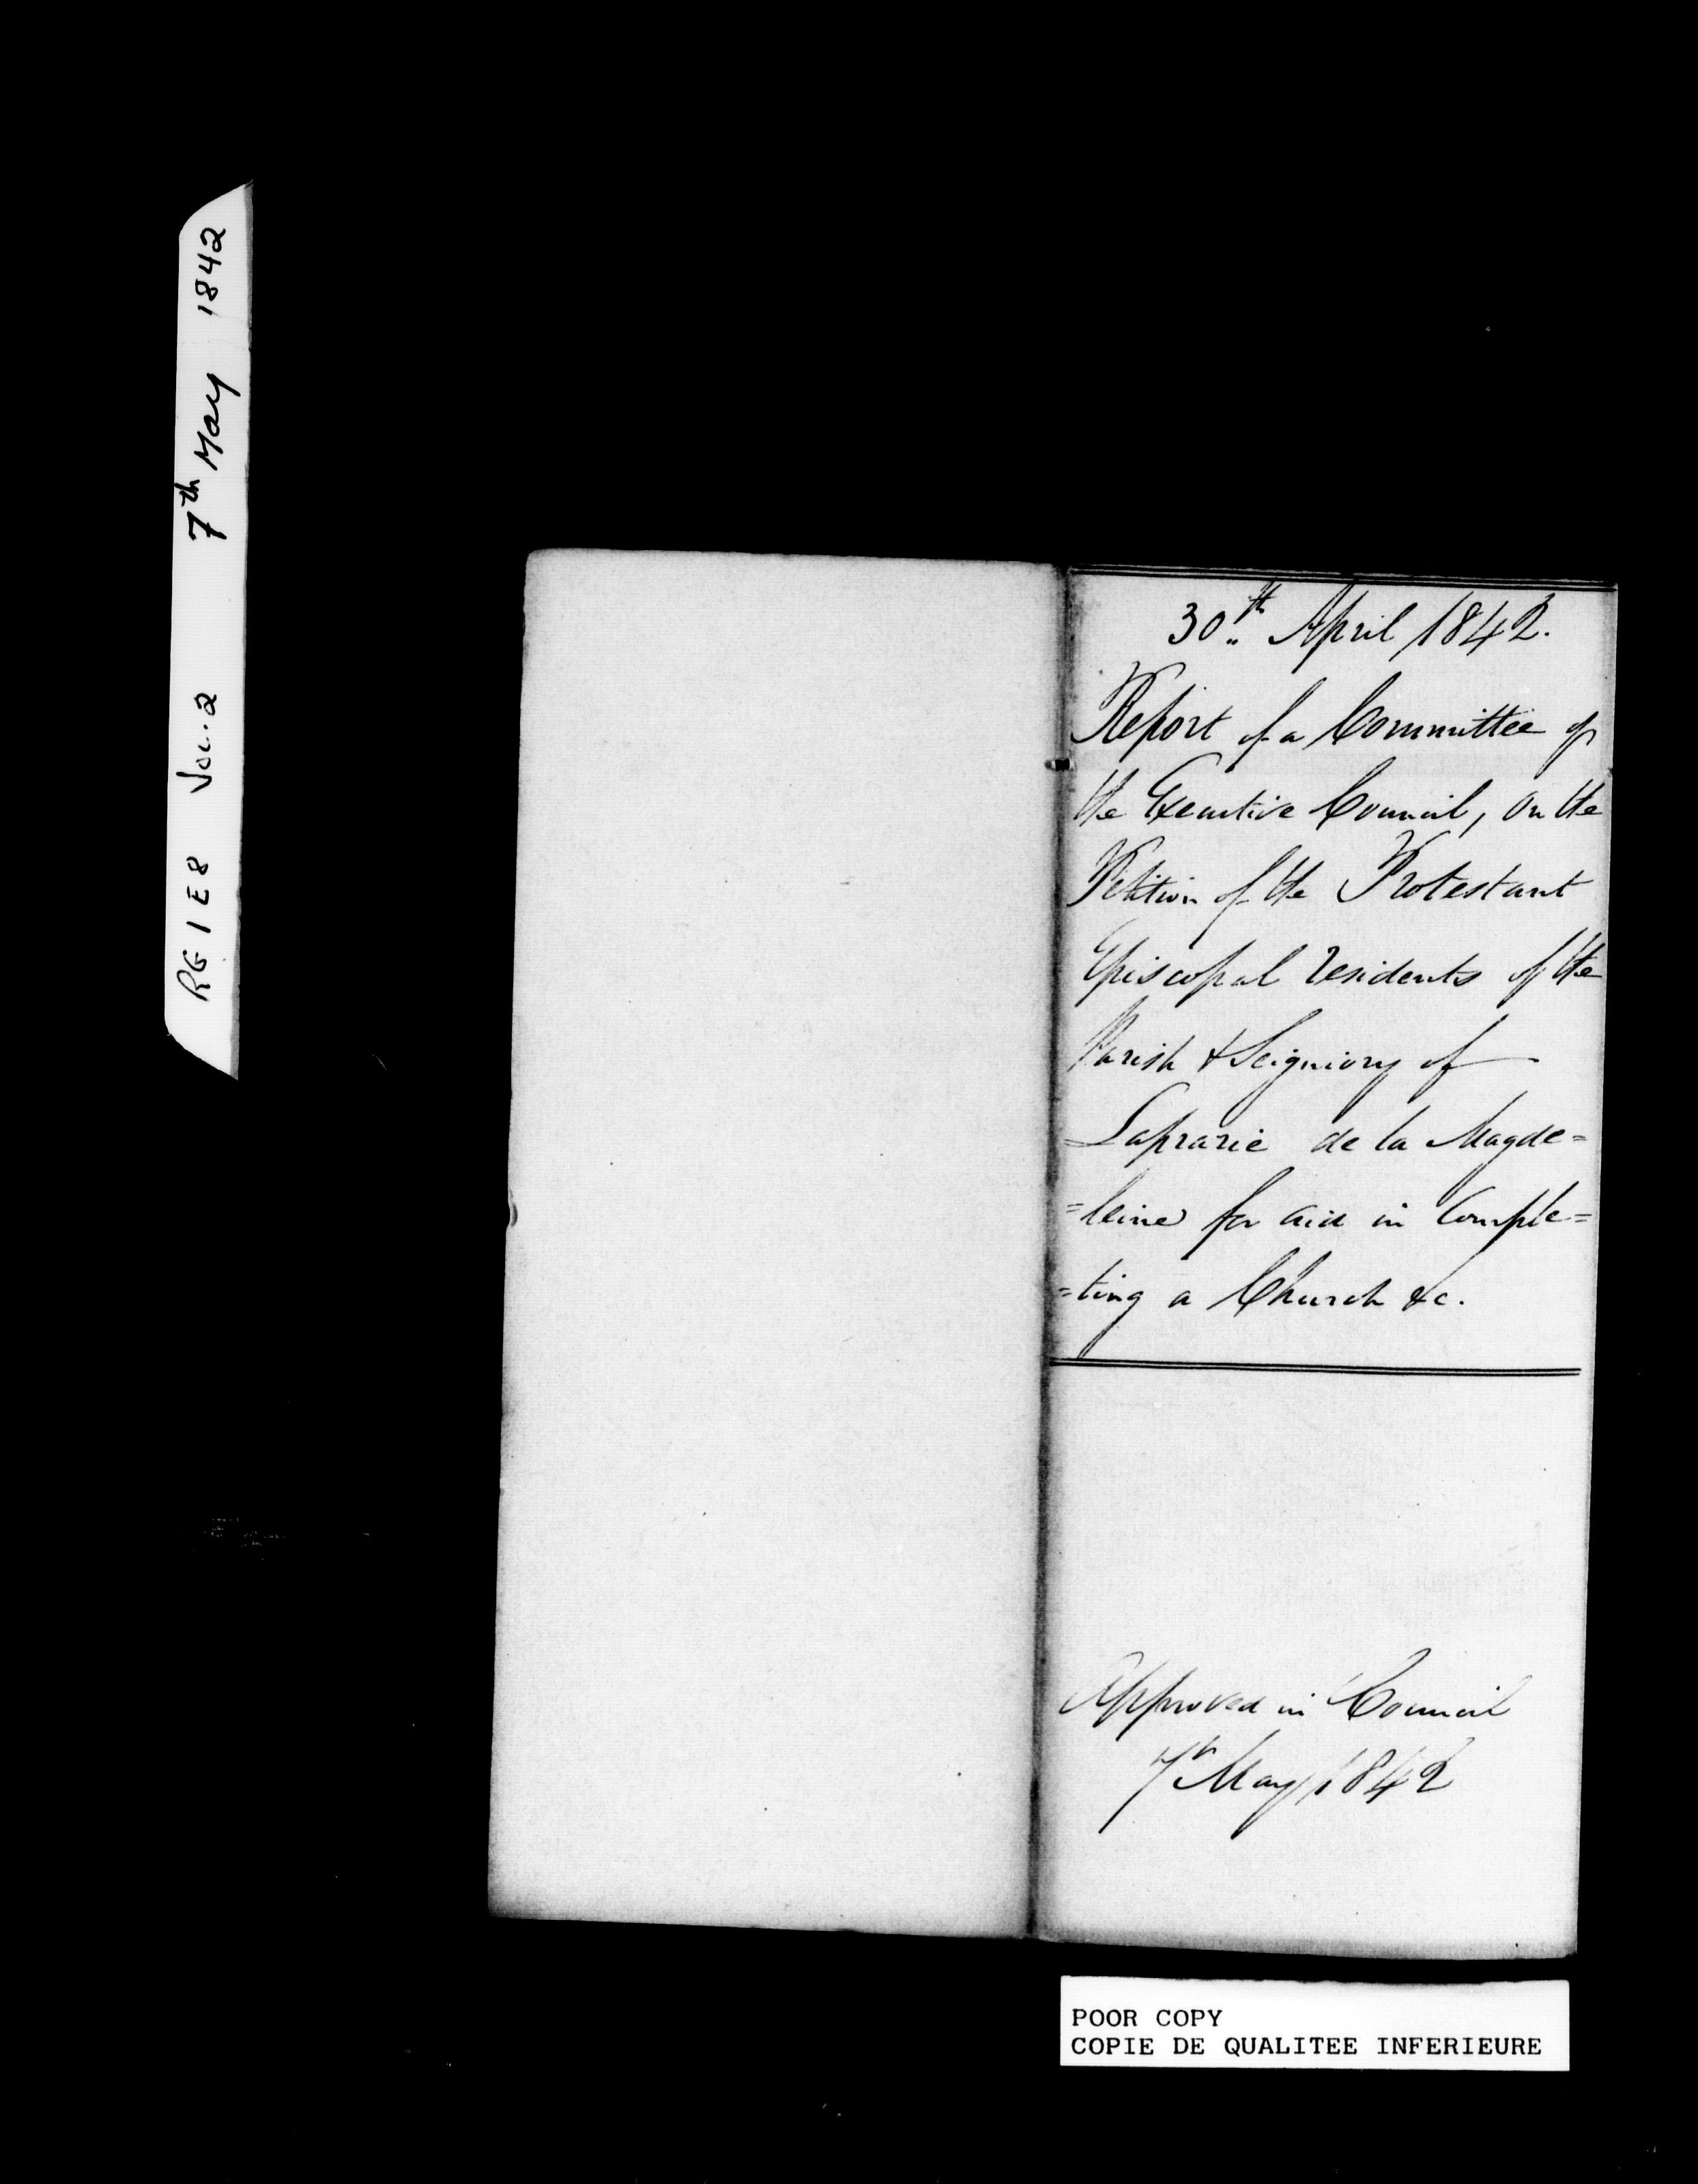 RG 1 E8 Vol. 2 7th May 1842
30th April 1842.
Report of a Committee of
the Executive Council, on the
Petition of the Protestant
Episcopal residents of the
Parish & Seigniory of
Laprarie de la Magde=
=leine for aid in Comple=
=ting a Church &c.
Approved in Council
7th May 1842
POOR COPY
COPIE DE QUALITEE INFERIEURE